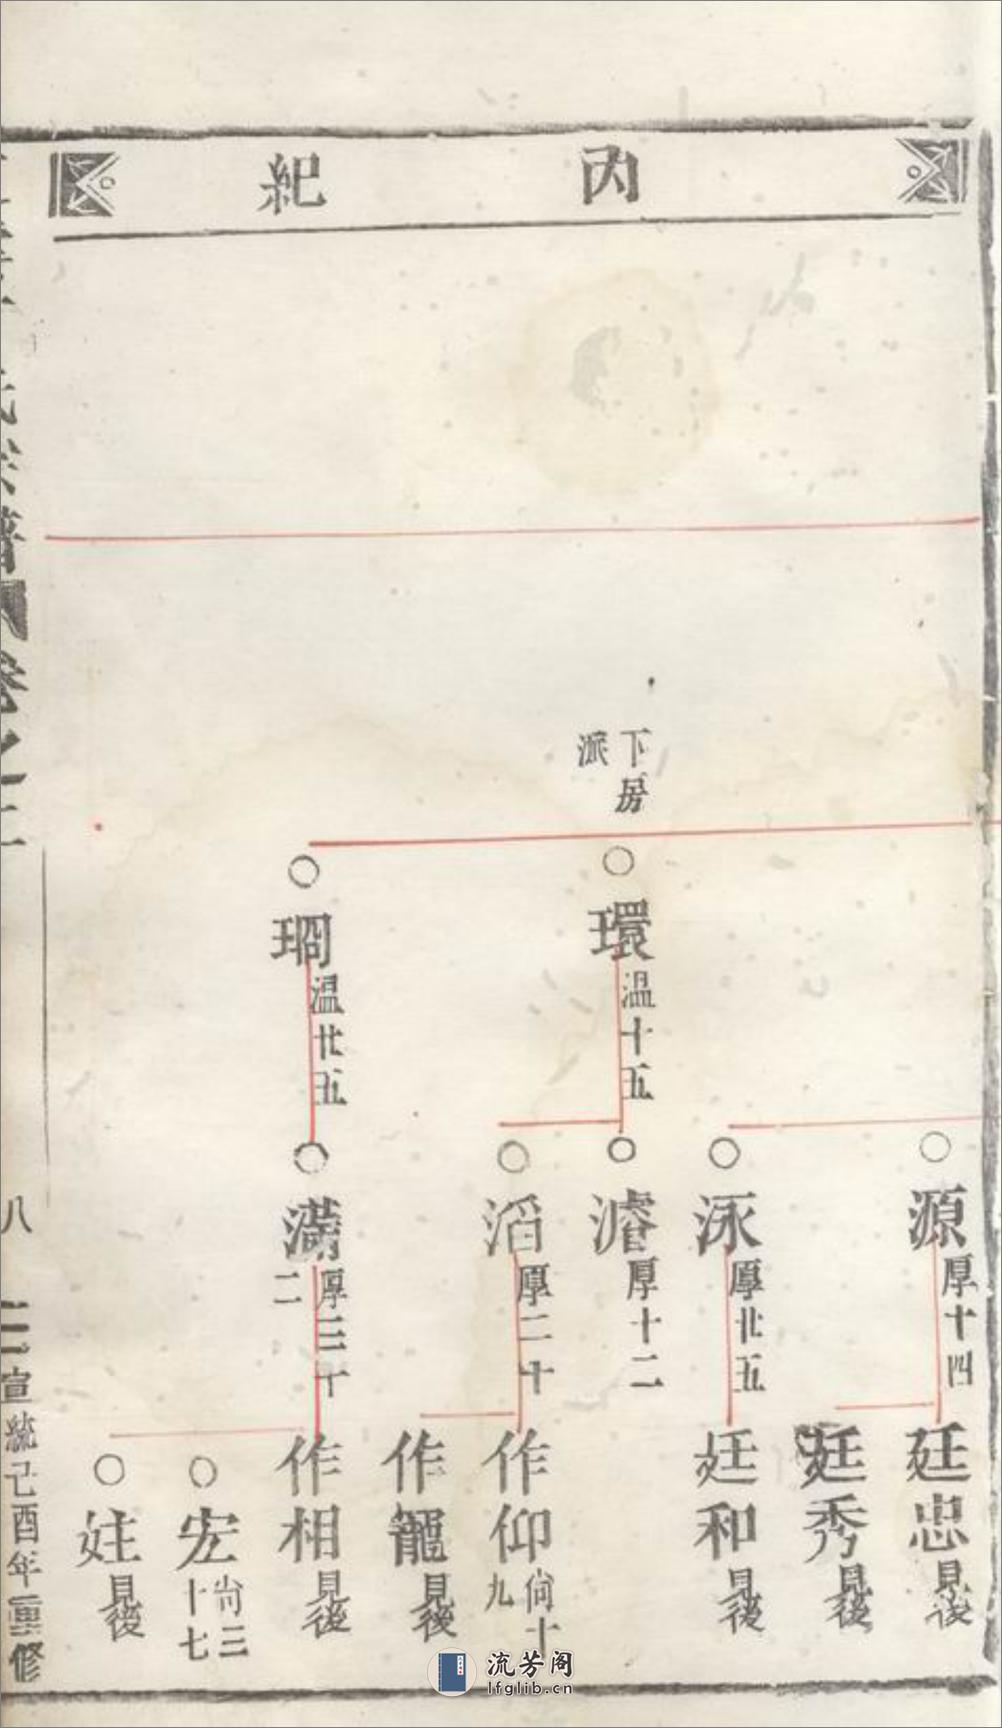 丙紀
下房
派
環
温十五
琱
温廿五
源
厚十四
泳
厚廿五
濬
厚十二
滔
厚二十
滿
厚三十
二
廷忠
見後
廷秀
見後
廷和
見後
作仰
尙十
九
作龍
見後
作相
見後
宏
尙三
十七
妵
見後
氏宗譜
卷之二
八
宣統己酉年重修
流芳阁
lfglib.cn